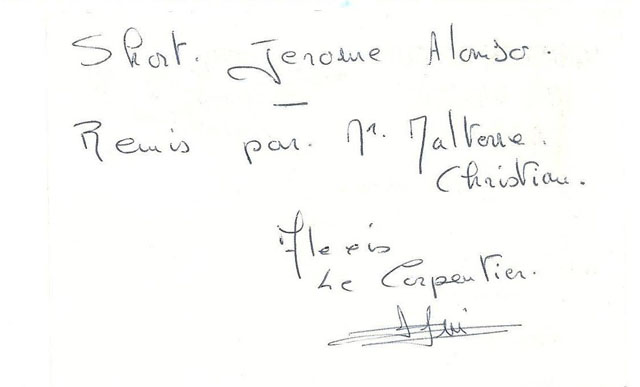 Short. Jerome Alonso.
Remis par. Mr. Malterre.
Christian.
Alexis
Le Carpentier.